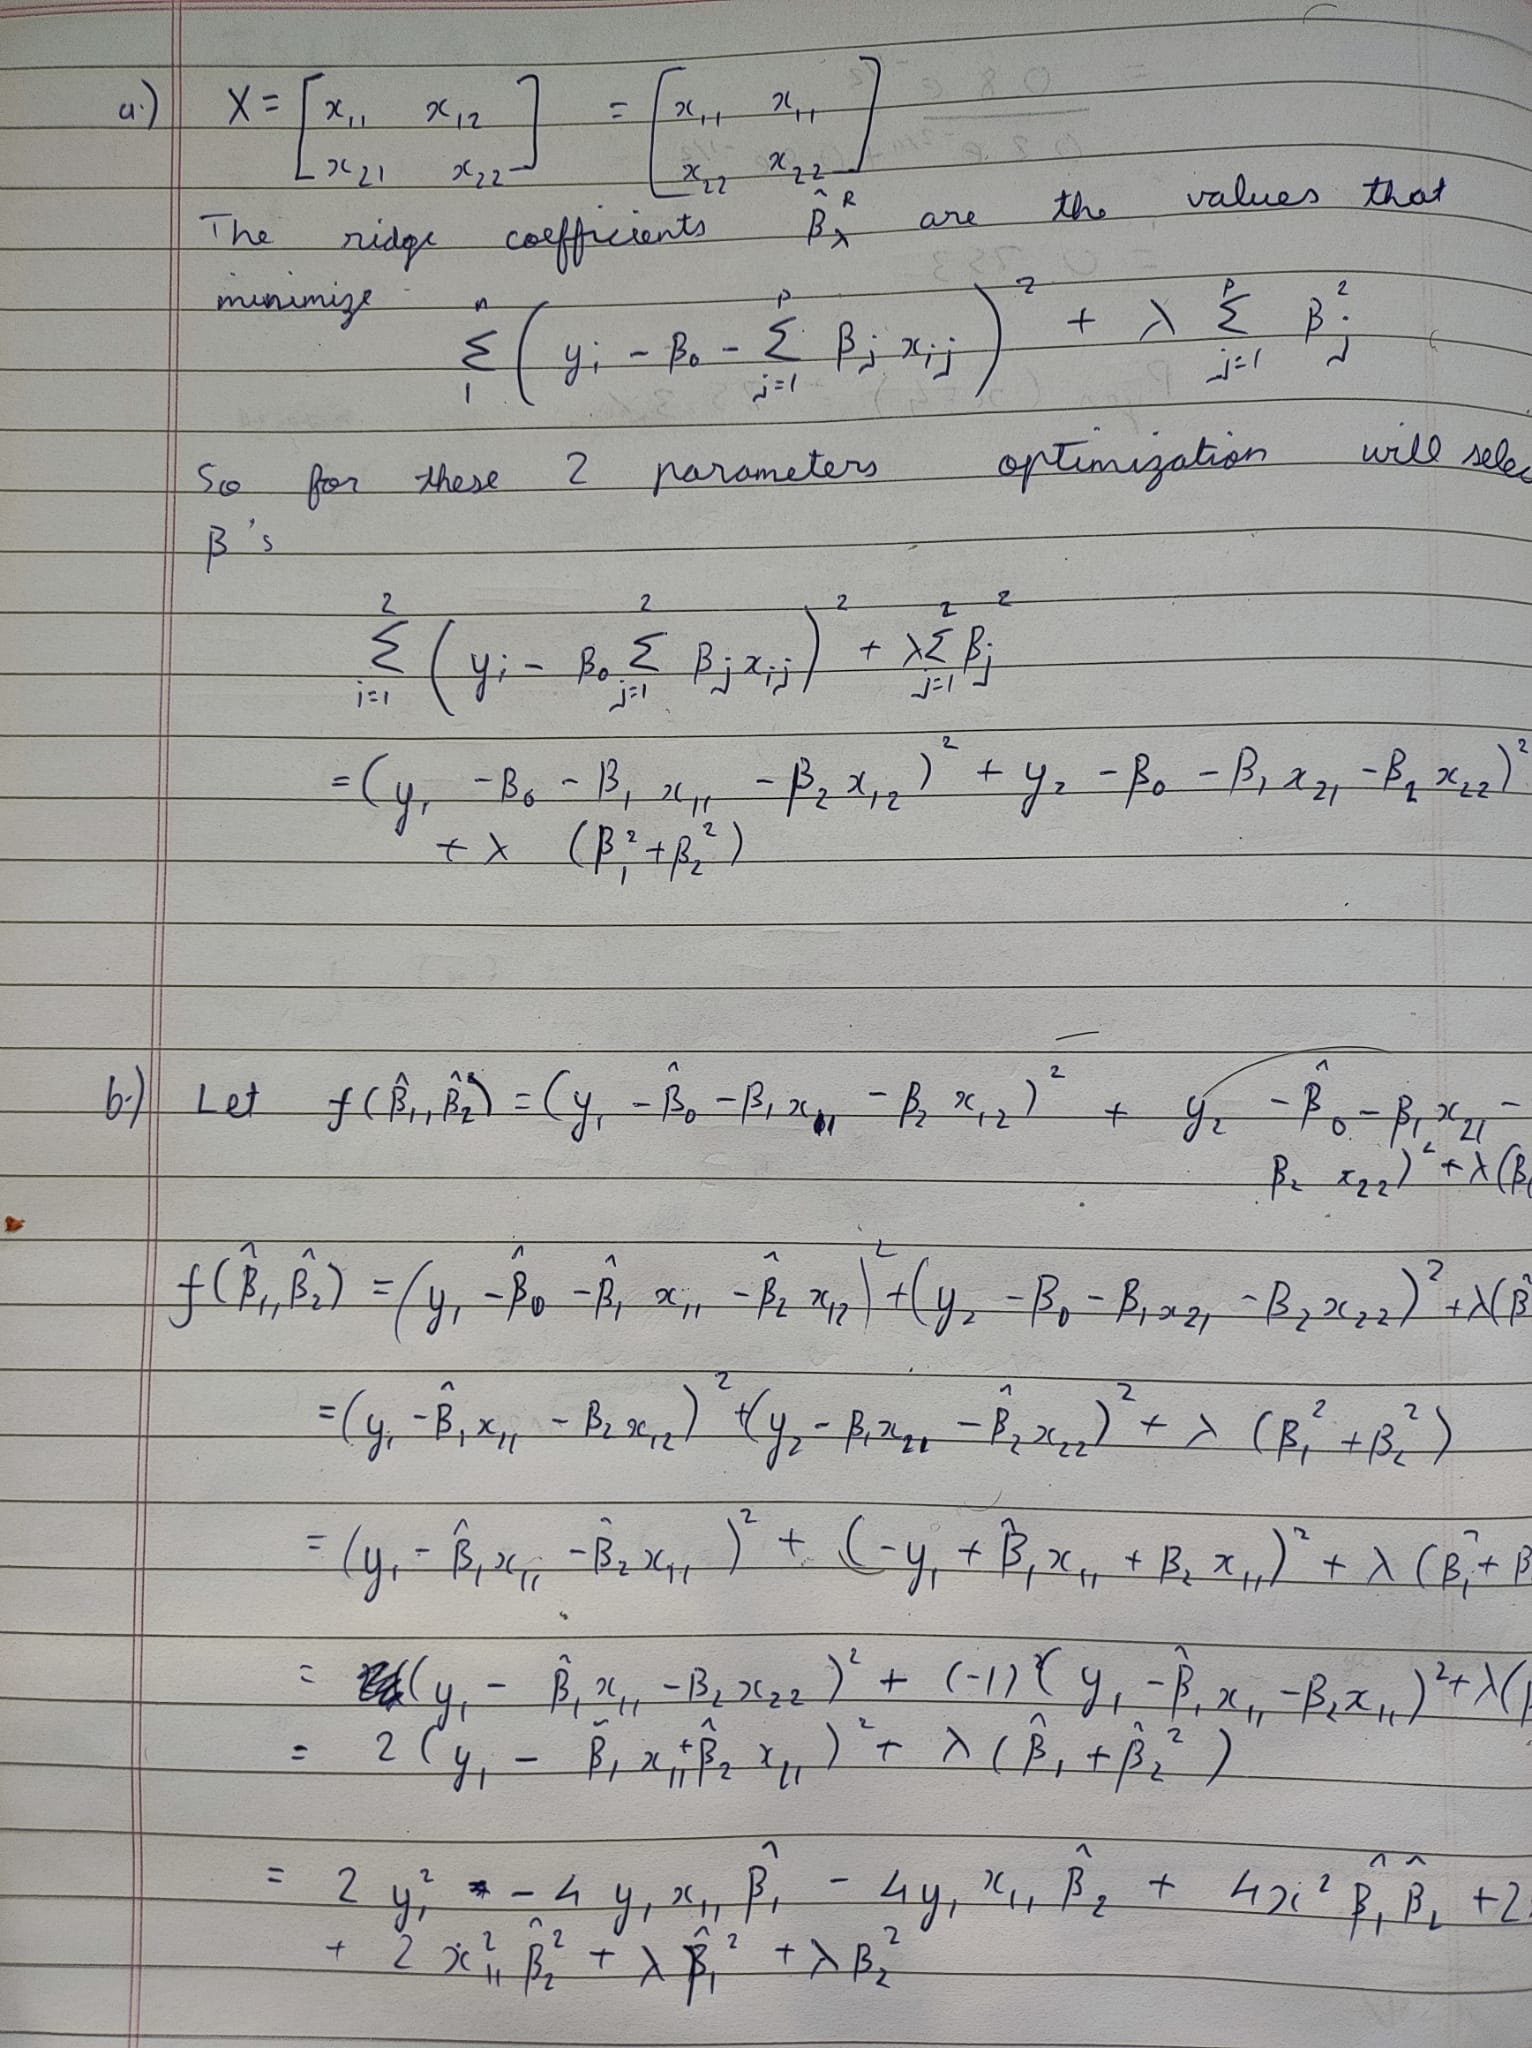 a.) X = [ x₁₁ x₁₂ ] = [ x₁₁ x₁₁ ]
[ x₂₁ x₂₂ ] [ x₂₂ x₂₂ ]
The ridge coefficients β̂λᴿ are the values that
minimize
Σ₁ⁿ ( yᵢ - β₀ - Σⱼ₌₁ᵖ βⱼ xᵢⱼ )² + λ Σⱼ₌₁ᵖ βⱼ²
So for these 2 parameters optimization will selec
β's
Σᵢ₌₁² ( yᵢ - β₀ Σⱼ₌₁² βⱼ xᵢⱼ )² + λ Σⱼ₌₁² βⱼ²
= ( y₁ - β₀ - β₁ x₁₁ - β₂ x₁₂ )² + y₂ - β₀ - β₁ x₂₁ - β₂ x₂₂ )²
+ λ (β₁² + β₂²)
b.) Let f(β̂₁, β̂₂) = (y₁ - β̂₀ - β₁ x₁₁ - β₂ x₁₂ )² + y₂ - β̂₀ - β₁ x₂₁ -
β₂ x₂₂)² + λ(β₁
f(β̂₁, β̂₂) = (y₁ - β̂₀ - β̂₁ x₁₁ - β̂₂ x₁₂)² + (y₂ - β₀ - β₁ x₂₁ - β₂ x₂₂)² + λ(β̂
= (y₁ - β̂₁ x₁₁ - β₂ x₁₂)² + (y₂ - β₁ x₂₁ - β̂₂ x₂₂)² + λ (β₁² + β₂²)
= (y₁ - β̂₁ x₁₁ - β̂₂ x₁₁ )² + (-y₁ + β̂₁ x₁₁ + β₂ x₁₁)² + λ (β₁² + β
= (y₁ - β̂₁ x₁₁ - β₂ x₂₂ )² + (-1)² ( y₁ - β̂₁ x₁₁ - β₂ x₁₁ )² + λ(β
= 2 (y₁ - β̂₁ x₁₁ + β̂₂ x₁₁ )² + λ (β̂₁ + β̂₂² )
= 2 y₁² - 4 y₁ x₁₁ β̂₁ - 4y₁ x₁₁ β̂₂ + 4x² β̂₁ β̂₂ + 2
+ 2 x₁₁² β̂₂² + λ β̂₁² + λ β₂²